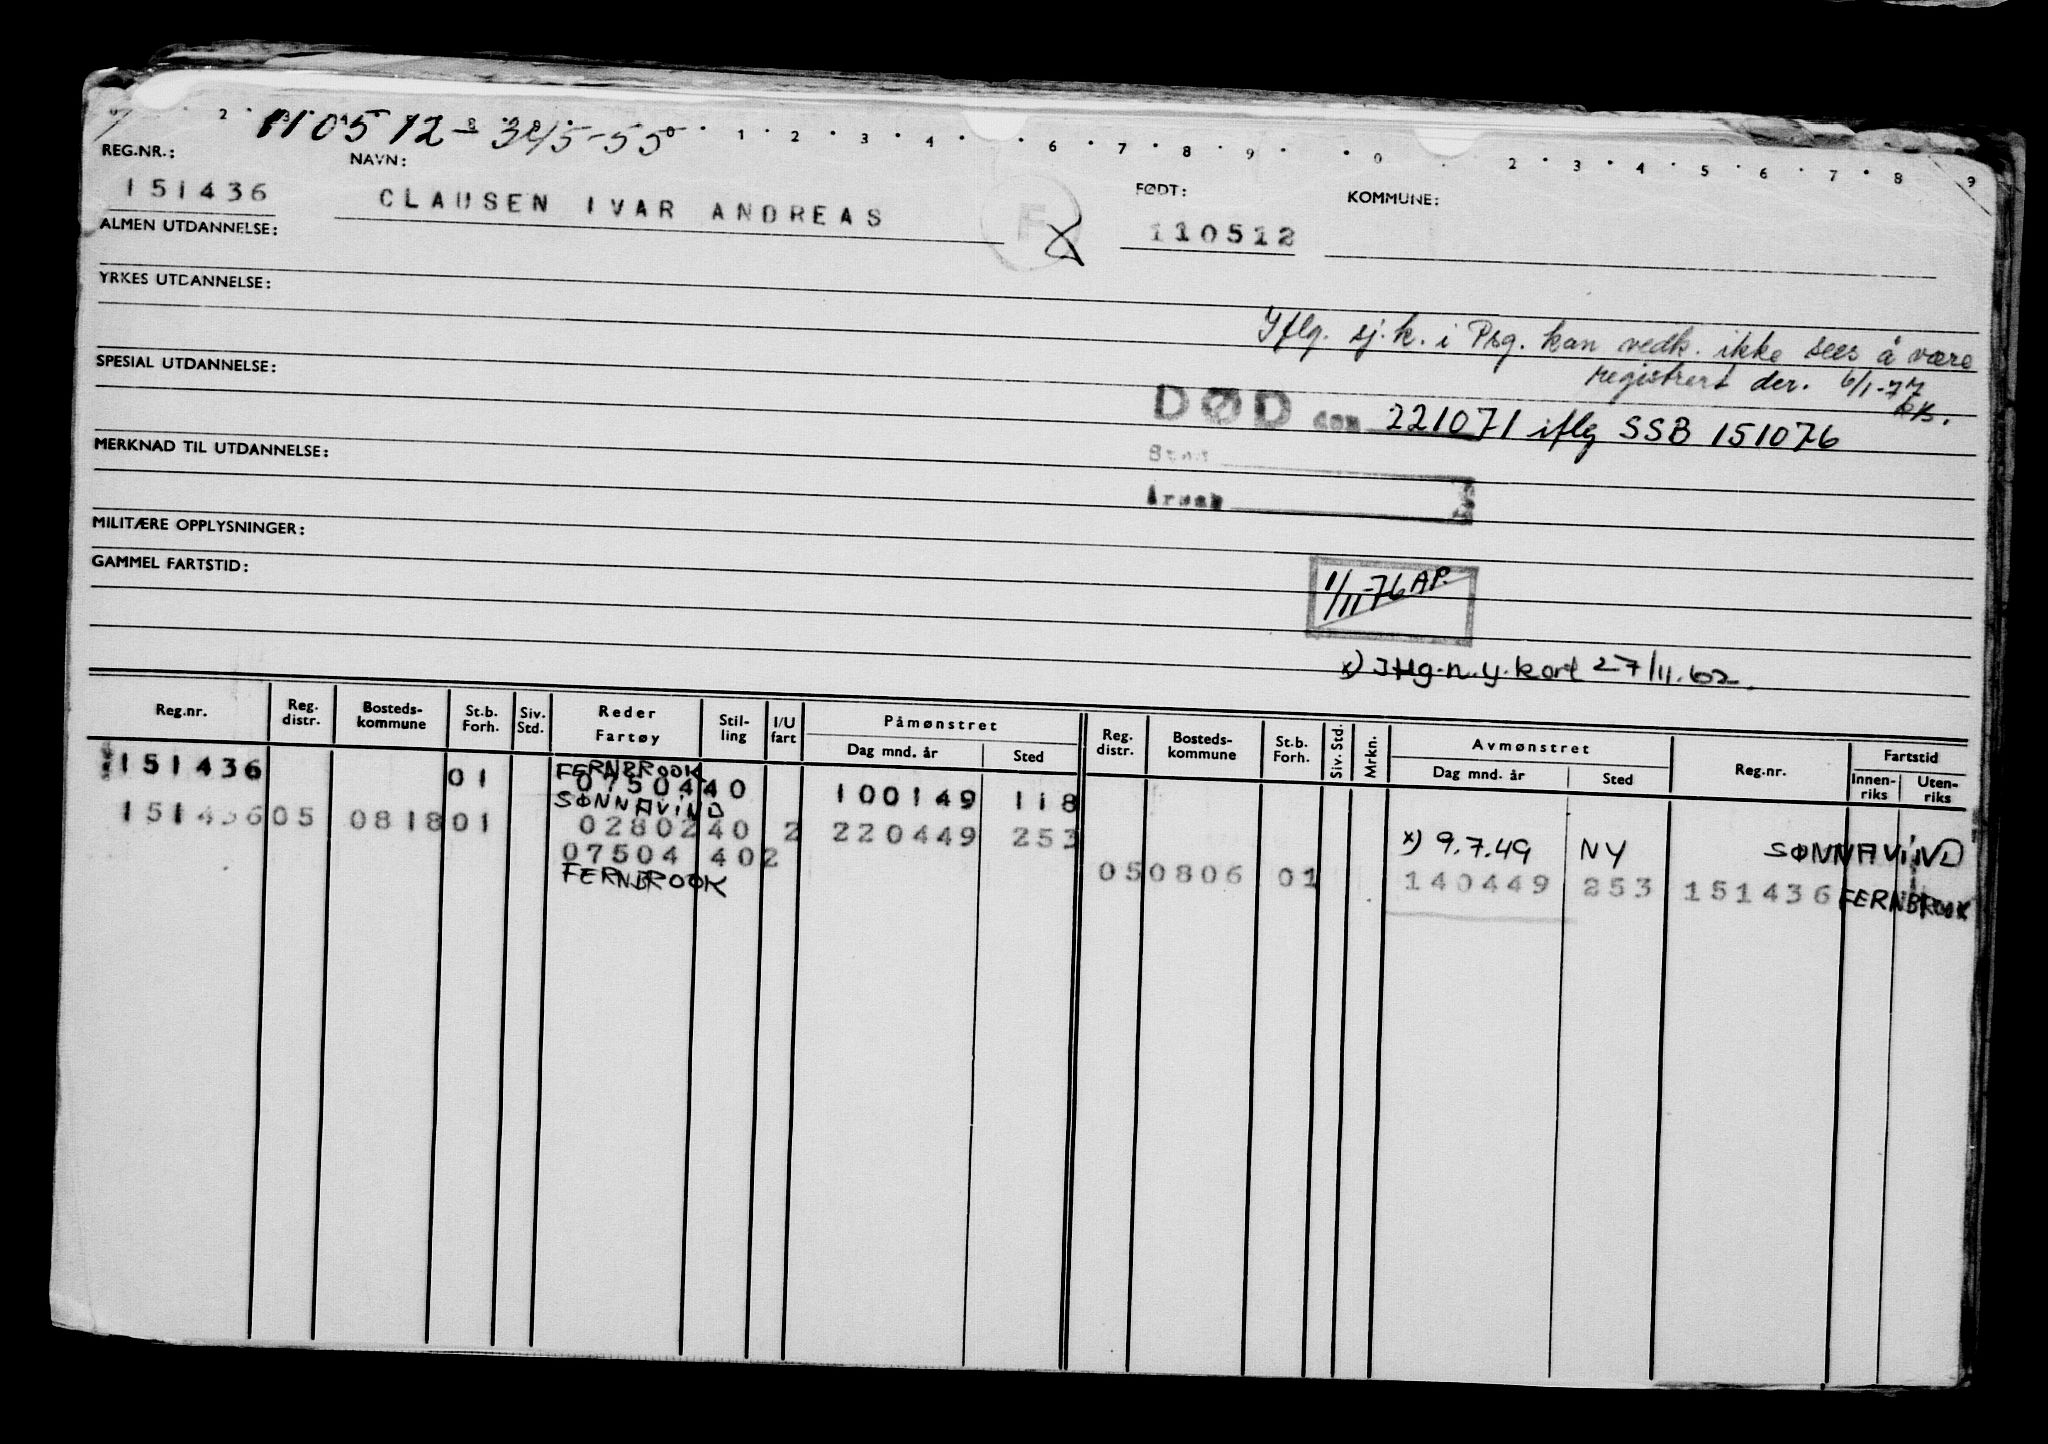 110512-345-55
REG.NR.: NAVN: FØDT: KOMMUNE:
151436 CLAUSEN IVAR ANDREAS F 110512
ALMEN UTDANNELSE:
YRKES UTDANNELSE:
Iflg. sj.k. i Psg. kan vedk. ikke sees å være
SPESIAL UTDANNELSE:
registrert der. 6/1-77
DØD den 221071 iflg SSB 151076
MERKNAD TIL UTDANNELSE:
Sted
Årsak
MILITÆRE OPPLYSNINGER:
GAMMEL FARTSTID:
1/11-76 AP.
x) Iflg. n.y. kort 27/11.62.
Reg.nr. Reg. distr. Bosteds-kommune St.b. Forh. Siv. Std. Reder Fartøy Stil-ling I/U fart Påmønstret Dag mnd. år Sted Reg. distr. Bosteds-kommune St.b. Forh. Siv. Std. Mrkn. Avmønstret Dag mnd. år Sted Reg.nr. Fartstid Innen-riks Uten-riks
FERNBROOK
151436 01 07504 40 100149 118
SØNNAVIND
151436 05 0818 01 02802 40 2 220449 253 x) 9.7.49 NY SØNNAVIND
07504 40 2 05 0806 01 140449 253 151436 FERNBROOK
FERNBROOK